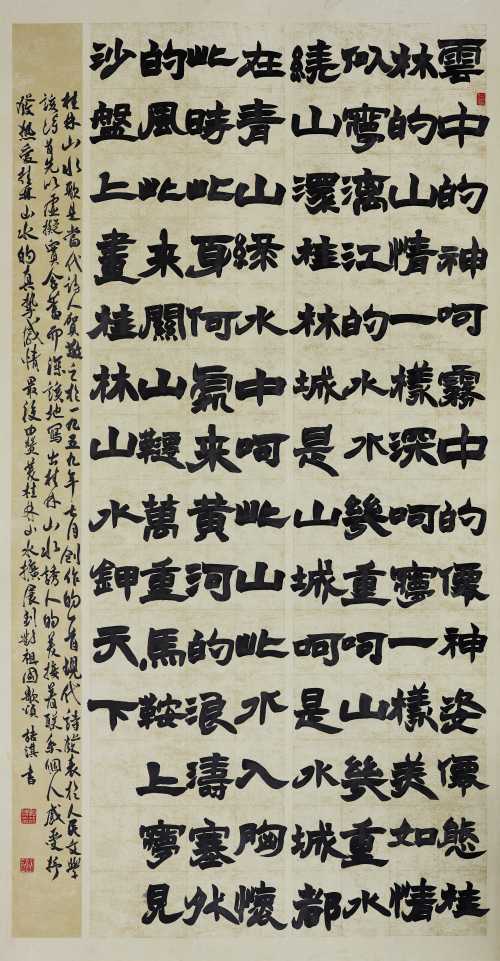 雲中的神呵霧中的僊神姿僊態桂
林的山情一樣深呵夢一樣美如情
似夢漓江的水水幾重呵山幾重水
繞山環桂林城是山城呵是水城都
在青山綠水中呵此山此水入胸懷
此時此身何處来黄河的浪濤塞外
的風此来關山韆萬重馬鞍上夢見
沙盤上畫桂林山水鉀天下
桂林山水歌是當代詩人賀敬之於一九五九年七月創作的一首現代詩發表於人民文學
該詩首先以虛擬實地寫出桂林山水誘人的美接着联系個人感受抒
發熱愛桂林山水的真摯感情最後由贊美桂林山水擴展到對祖國歌頌 淇書